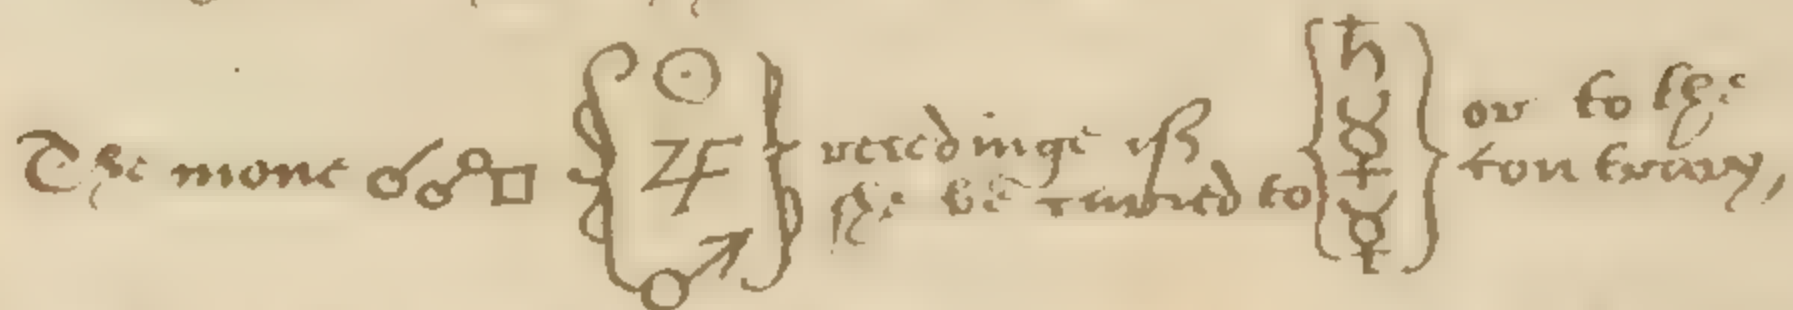 The mone ☌ ☍ □ { ☉ ♃ ♂ } reedinge iff
she be turned to { ♄ ☿ ☿ } or to the
contrary,